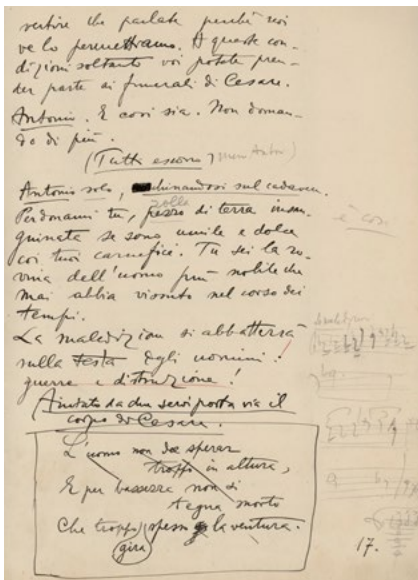 vertire che parlate perchè noi
ve lo permettiamo. A queste con-
dizioni soltanto voi potete pren-
der parte ai funerali di Cesare.
Antonio. E così sia. Non doman-
do di più.
(Tutti escono, meno Anton)
Antonio solo, chinandosi sul cadavere.
zolla
Perdonami tu, pezzo di terra insan-
guinata se sono umile e dolce
coi tuoi carnefici. Tu sei la ro-
vina dell'uomo più nobile che
mai abbia vissuto nel corso dei
tempi.
La maledizion si abbatterà
sulla testa degli uomini!
guerre e distruzione!
Aiutato da due servi porta via il
corpo di Cesare.
L'uomo non dee sperar
troppo in altura,
E per bassezza non si
tegna morto
Che troppo spesso la ventura.
gira
è così
17.